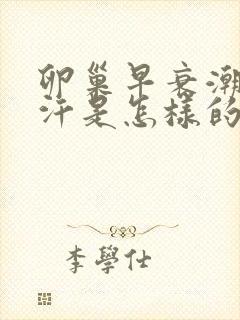 卵巢早衰潮
汗是怎樣的
李學仕